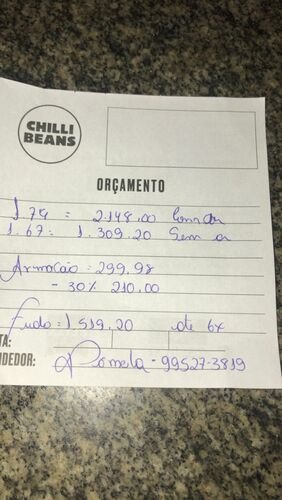 CHILLI
BEANS
ORÇAMENTO
1.74 = 2.148.00
1.67: 1.309.20 Sem a
Armação = 299.98
- 30% 210.00
Tudo = 1.519.20 até 6x
TA:
NDEDOR: Pâmela - 99527-3819